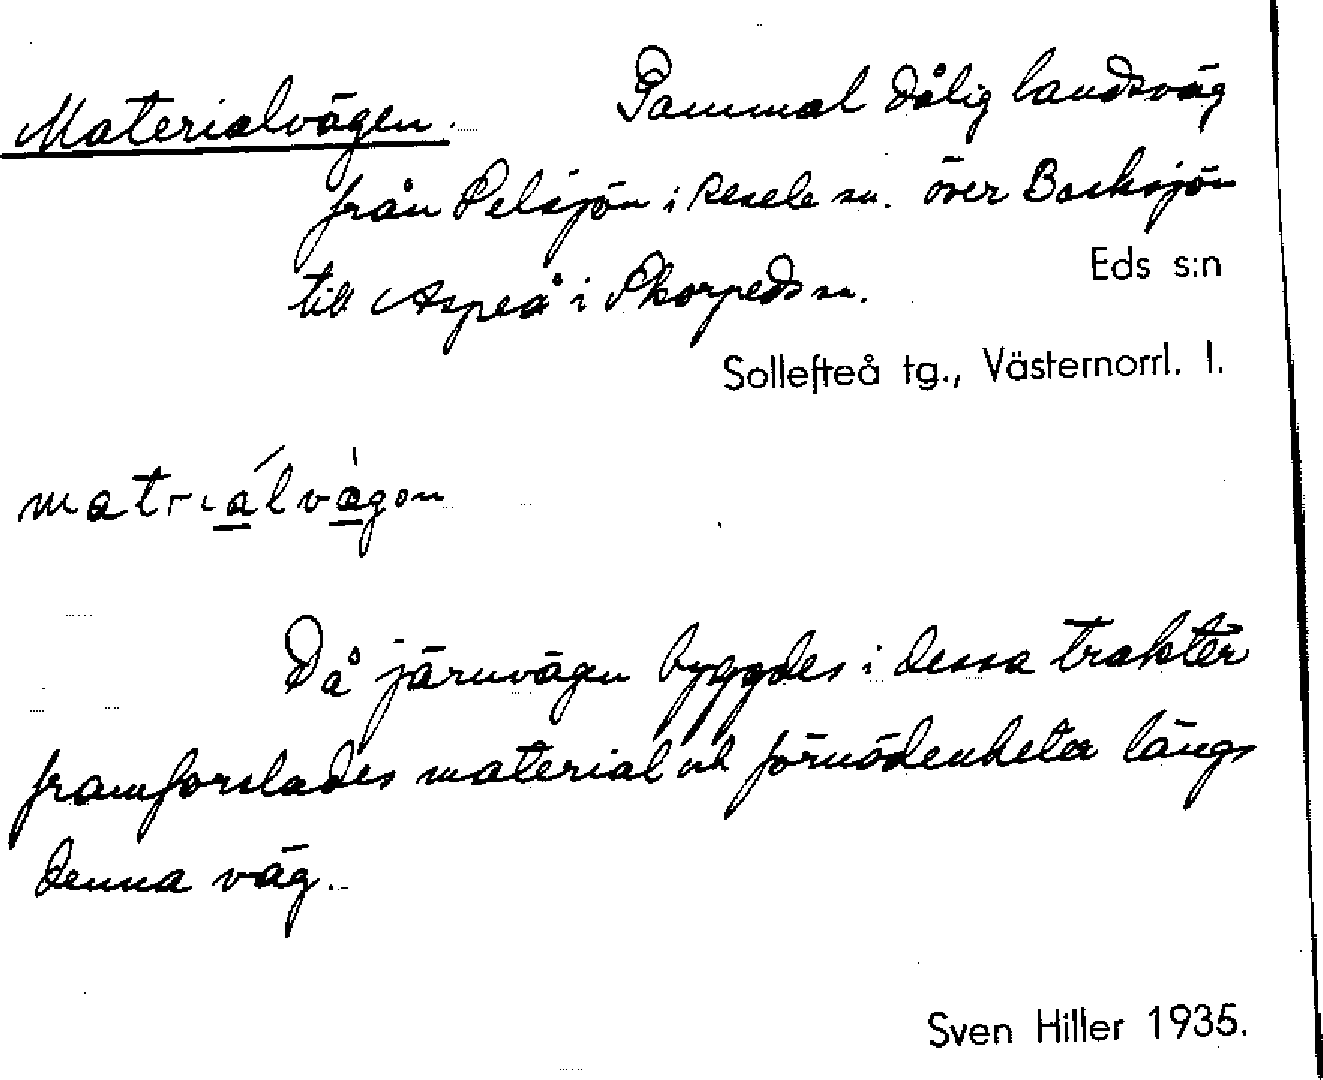 Materialvägen. Gammal dålig landsväg
från Pelsjön i Resele sn. över Backsjön
till Aspeå i Skorpeds sn.
Eds s:n
Sollefteå tg., Västernorrl. l.
matriálvàgon
Då järnvägen byggdes i dessa trakter
framforslades material och förnödenheter längs
denna väg.
Sven Hiller 1935.